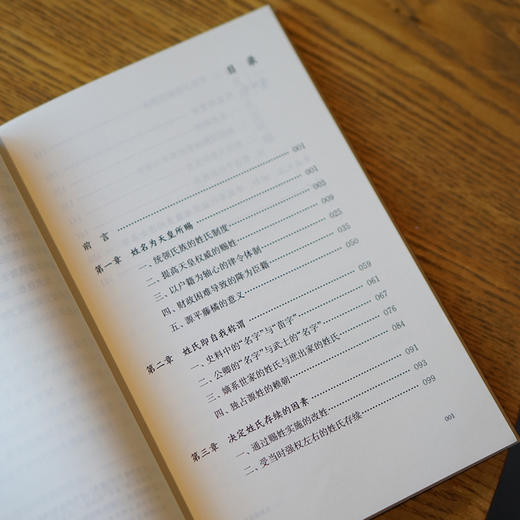 目 录
前 言 ………… 001
第一章 姓名为天皇所赐 ………… 001
一、统领氏族的姓氏制度 ………… 003
二、提高天皇权威的赐姓 ………… 009
三、以户籍为轴心的律令体制 ………… 025
四、财政困难导致的降为臣籍 ………… 035
五、源平藤橘的意义 ………… 050
第二章 姓氏即自我称谓 ………… 061
一、史料中的“名字”与“苗字” ………… 061
二、公卿的“名字”与武士的“名字” ………… 067
三、嫡系世家的姓氏与庶出家的姓氏 ………… 076
四、独占源姓的赖朝 ………… 084
第三章 决定姓氏存续的因素 ………… 091
一、通过赐姓实施的改姓 ………… 093
二、受当时强权左右的姓氏存续 ………… 099
001